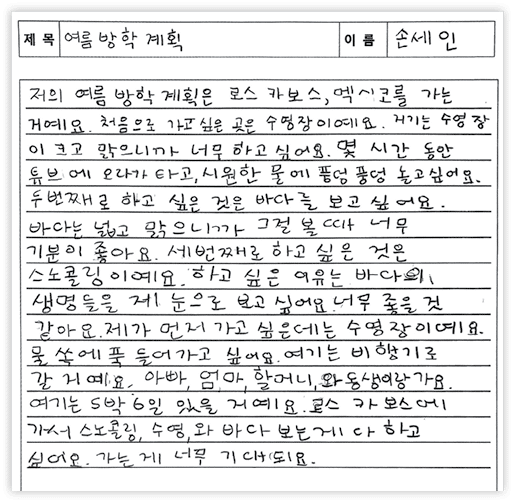 제 목 여름 방학 계획 이 름 손세인
저의 여름 방학 계획은 로스 카보스, 멕시코를 가는
거예요. 처음으로 가고 싶은 곳은 수영장이예요. 거기는 수영장
이 크고 맑으니까 너무 하고 싶어요. 몇 시간 동안
튜브에 올라가 타고, 시원한 물에 풍덩 풍덩 놀고 싶어요.
두번째로 하고 싶은 것은 바다를 보고 싶어요.
바다는 넓고 맑으니까 그걸 볼 때 너무
기분이 좋아요. 세번째로 하고 싶은 것은
스노콜링이예요. 하고 싶은 이유는 바다의
생명들을 제 눈으로 보고 싶어요. 너무 좋을 것
같아요. 제가 먼저 가고 싶은데는 수영장이예요.
물 쏙에 푹 들어가고 싶어요. 여기는 비행기로
갈 거예요. 아빠, 엄마, 할머니, 와 동생이랑 가요.
여기는 5박 6일 있을 거예요. 로스 카보스에
가서 스노콜링, 수영, 와 바다 보는게 다 하고
싶어요. 가는게 너무 기대되요.